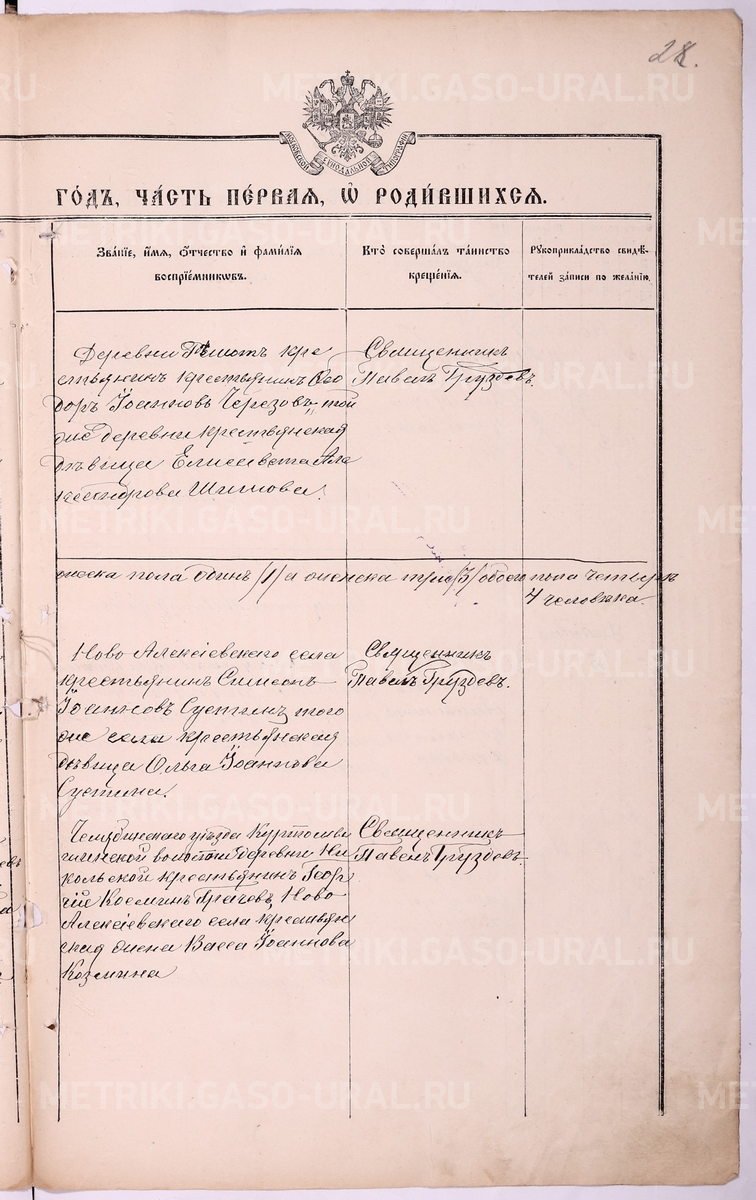 28.
МОСКОВСКОЙ СѴНОДАЛЬНОЙ ТИПОГРАФІИ
ГО́ДЪ, ЧА́СТЬ ПЕ́РВАЯ, Ѡ҆ РОДИ́ВШИХСЯ.
Зва́нїе, и҆́мѧ, ѻ҆́тчество и҆ фами́лїѧ
воспрїе́мникѡвъ.
Кто̀ соверша́лъ та́инство
креще́нїѧ.
Рꙋкоприкла́дство свидѣ́-
телей за́писи по жела́нїю.
Деревни кре
стьянинъ крестьянинъ Ѳео
доръ Іоанновъ Черезовъ, той
же деревни крестьянская
дѣвица Елисавета Але
ксандрова Шитова.
Священникъ
Павелъ Груздевъ.
жеска пола одинъ /1/ а женска три /3/ обоего пола четыре
4 человѣка.
Ново Алексіевскаго села
крестьянинъ Симеонъ
Іоанновъ Сустинъ, того
же села крестьянская
дѣвица Ольга Іоаннова
Сустина.
Священникъ
Павелъ Груздевъ.
уѣзда
волости деревни Ни
кольской крестьянинъ Геор
гій Косминъ Грачевъ, Ново
Алексіевскаго села крестьян
ская жена Васса Іоаннова
Козмина
Священникъ
Павелъ Груздевъ.
METRIKI.GASO-URAL.RU